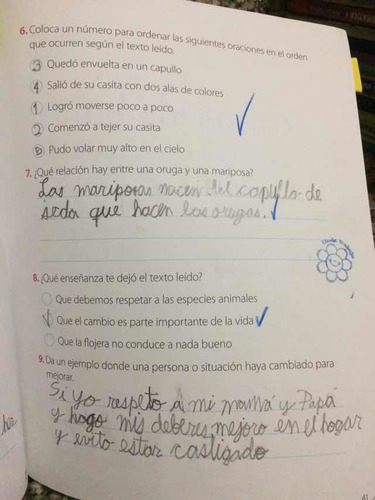 6. Coloca un número para ordenar las siguientes oraciones en el orden
que ocurren según el texto leído.
3 Quedó envuelta en un capullo
4 Salió de su casita con dos alas de colores
1 Logró moverse poco a poco
2 Comenzó a tejer su casita
5 Pudo volar muy alto en el cielo
7. ¿Qué relación hay entre una oruga y una mariposa?
Las mariposas nacen del capullo de
seda que hacen las orugas.
8. ¿Qué enseñanza te dejó el texto leído?
Que debemos respetar a las especies animales
Que el cambio es parte importante de la vida
Que la flojera no conduce a nada bueno
9. Da un ejemplo donde una persona o situación haya cambiado para
mejorar.
Si yo respeto a mi mamá y Papá
y hago mis deberes mejoro en el hogar
y evito estar castigado
41